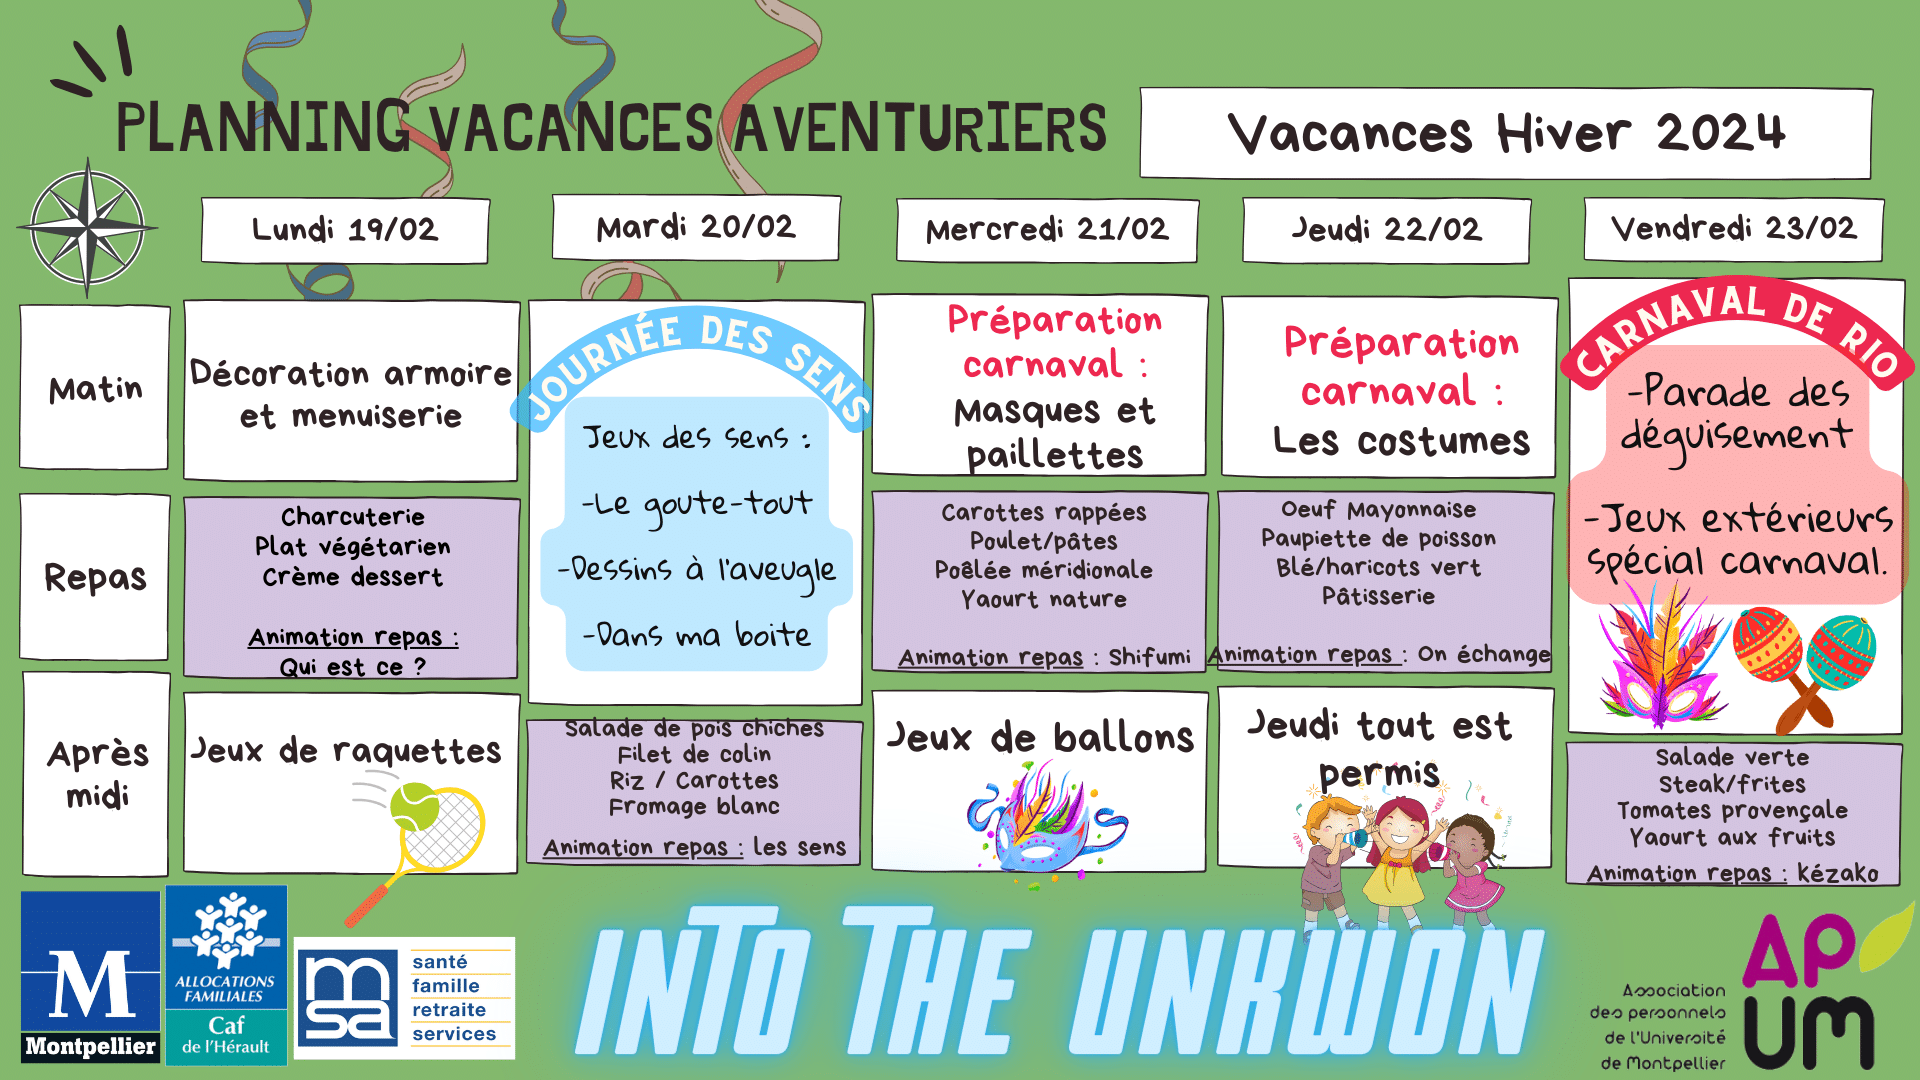 PLANNING VACANCES AVENTURIERS
Vacances Hiver 2024
Lundi 19/02
Mardi 20/02
Mercredi 21/02
Jeudi 22/02
Vendredi 23/02
Matin
Décoration armoire
et menuiserie
JOURNÉE DES SENS
Jeux des sens :
-Le goute-tout
-Dessins à l'aveugle
-Dans ma boite
Préparation
carnaval :
Masques et
paillettes
Préparation
carnaval :
Les costumes
CARNAVAL DE RIO
-Parade des
déguisement
-Jeux extérieurs
spécial carnaval.
Repas
Charcuterie
Plat végétarien
Crème dessert
Animation repas :
Qui est ce ?
Salade de pois chiches
Filet de colin
Riz / Carottes
Fromage blanc
Animation repas : les sens
Carottes rappées
Poulet/pâtes
Poêlée méridionale
Yaourt nature
Animation repas : Shifumi
Oeuf Mayonnaise
Paupiette de poisson
Blé/haricots vert
Pâtisserie
Animation repas : On échange
Salade verte
Steak/frites
Tomates provençale
Yaourt aux fruits
Animation repas : kézako
Après
midi
Jeux de raquettes
Jeux de ballons
Jeudi tout est
permis
INTO THE UNKWON
M
Montpellier
ALLOCATIONS
FAMILIALES
Caf
de l'Hérault
msa
santé
famille
retraite
services
Association
des personnels
de l'Université
de Montpellier
APUM